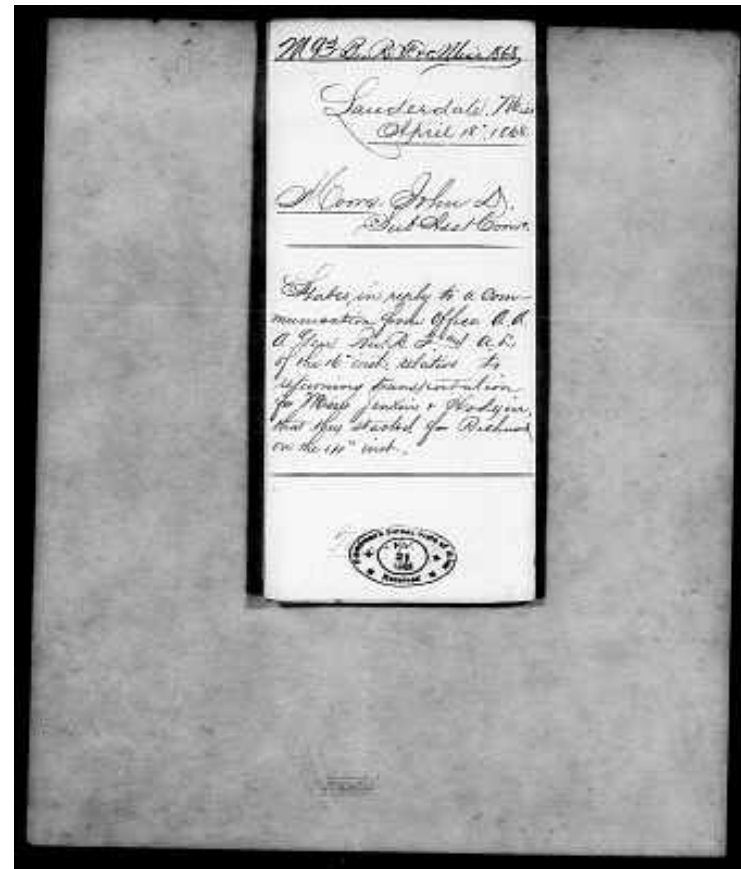 M 93 B. R. F. & Miss 1868
Lauderdale, Miss
April 18" 1868
Moore, John D.
Sub Asst Comr.
States, in reply to a com-
munication from Office A. A.
A Genl
of the 16" inst. relative to
returning transportation
for Messrs Jenkins &
that they started for Richmond
on the 14" inst.
21
1868
Received